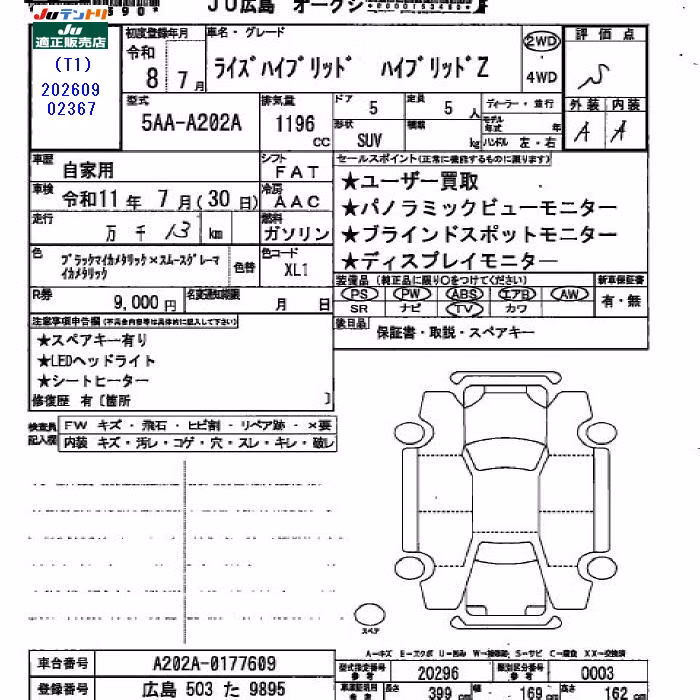 JU広島 オークシ
Juテントリ
JU 適正販売店
(T1)
202609
02367
初度登録年月
令和
8 7月
車名・グレード
ライズハイブリッド ハイブリッドZ
2WD
4WD
評価点
S
外装 内装
A A
型式
5AA-A202A
排気量
1196 cc
ドア
5
定員
5 人
形状
SUV
積載
kg
ディーラー・並行
モデル年式 年
ハンドル 左・右
車歴
自家用
シフト
FAT
車検
令和11年 7月(30日)
冷房
AAC
走行
万 千 13 km
燃料
ガソリン
色
ブラックマイカメタリック×スムースグレーマイカメタリック
色替
色コード
XL1
R券
9,000円
名変通知期限
月 日
セールスポイント(正常に機能するものに限ります)
★ユーザー買取
★パノラミックビューモニター
★ブラインドスポットモニター
★ディスプレイモニター
装備品(純正品に限り○をつけてください)
PS PW ABS エアB AW
SR ナビ TV カワ
新車保証書
有・無
後日品
保証書・取説・スペアキー
注意事項申告欄(不具合内容等は具体的に記入して下さい)
★スペアキー有り
★LEDヘッドライト
★シートヒーター
修復歴 有〔箇所 〕
検査員記入欄
FW キズ・飛石・ヒビ割・リペア跡・×要
内装 キズ・汚レ・コゲ・穴・スレ・キレ・破レ
スペア
A-キズ E-エクボ U-凹み W-補修跡 S-サビ C-腐食 XX-交換済
車台番号
A202A-0177609
登録番号
広島 503 た 9895
型式指定番号
参考
20296
類別区分番号
参考
0003
車庫証明用
参考
長さ 399 cm
幅 169 cm
高さ 162 cm